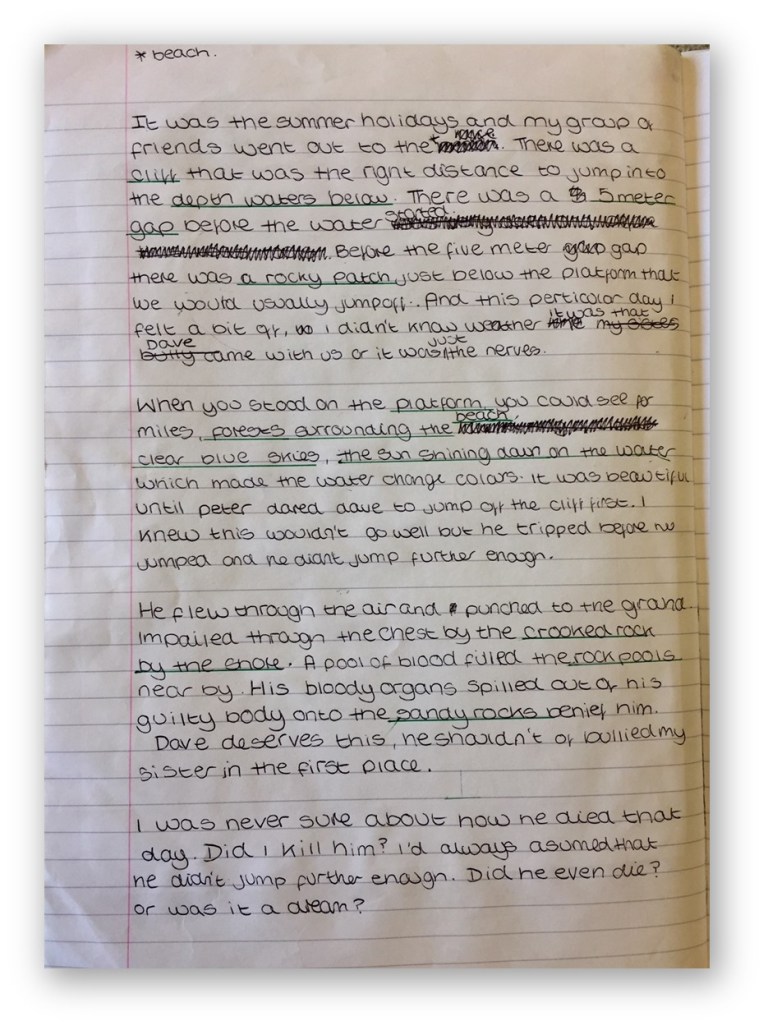 * beach.
It was the summer holidays and my group of
friends went out to the * . There was a
cliff that was the right distance to jump into
the depth waters below. There was a 5 meter
gap before the water started.
Before the five meter gap
there was a rocky patch just below the platform that
we would usually jump off. And this perticular day I
felt a bit off, I didn't know weather it was that
Dave came with us or it was just the nerves.
When you stood on the platform, you could see for
miles, forests surrounding the beach,
clear blue skies, the sun shining down on the water
which made the water change colors. It was beautiful
until peter dared dave to jump off the cliff first. I
knew this wouldn't go well but he tripped before he
jumped and he didnt jump further enough.
He flew through the air and punched to the ground
Impailed through the chest by the crooked rock
by the shore. A pool of blood filled the rockpools
near by. His bloody organs spilled out of his
guilty body onto the sandy rocks benief him.
Dave deserves this, he shouldn't of bullied my
sister in the first place.
I was never sure about how he died that
day. Did I kill him? I'd always asumed that
he didn't jump further enough. Did he even die?
or was it a dream?